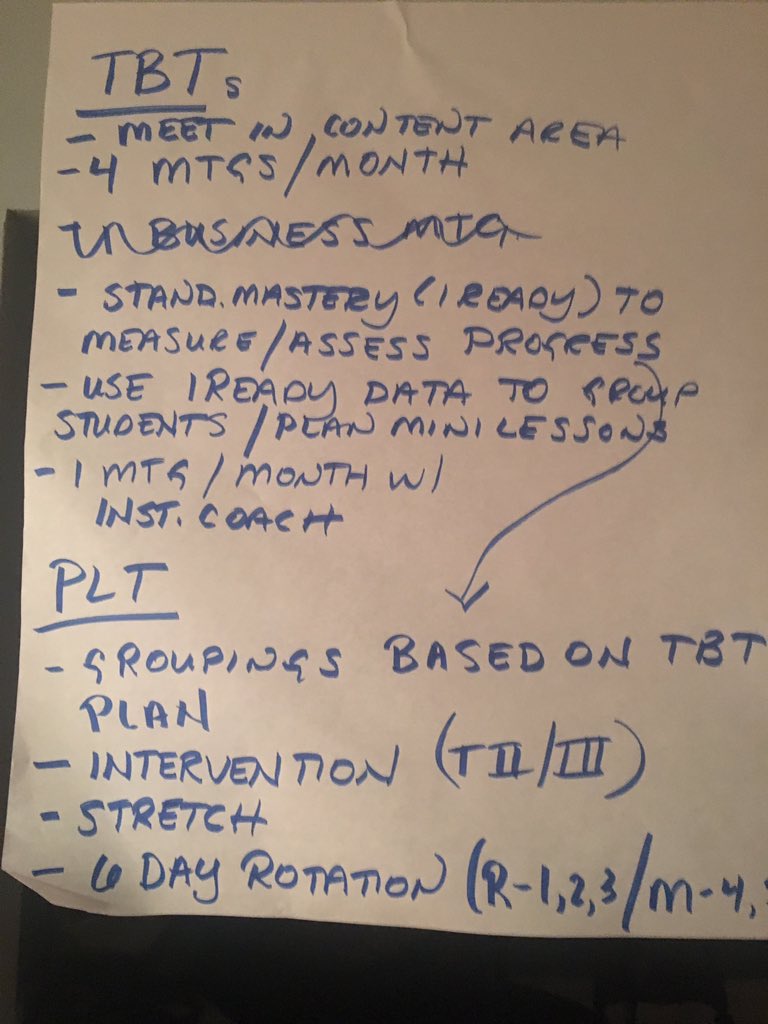 TBTs
- MEET IN CONTENT AREA
- 4 MTGS/MONTH
BUSINESS MTG
- STAND. MASTERY (1 READY) TO
MEASURE/ASSESS PROGRESS
- USE 1READY DATA TO GROUP
STUDENTS/PLAN MINI LESSONS
- 1 MTG/MONTH W/
INST. COACH
PLT
- GROUPINGS BASED ON TBT
PLAN
- INTERVENTION (TII/III)
- STRETCH
- 6 DAY ROTATION (R-1,2,3/M-4,